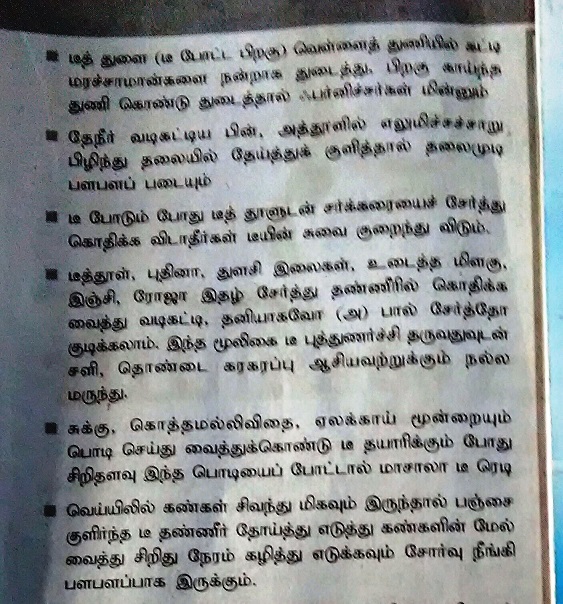 ■ டீத் துளை (டீ போட்ட பிறகு) வெள்ளைத் துணியில் கட்டி
மரச்சாமான்களை நன்றாக துடைத்து, பிறகு காய்ந்த
துணி கொண்டு துடைத்தால் ஃபர்னிச்சர்கள் மின்னும்
■ தேநீர் வடிகட்டிய பின், அத்தூளில் எலுமிச்சச்சாறு
பிழிந்து தலையில் தேய்த்துக் குளித்தால் தலைமுடி
பளபளப் படையும்
■ டீ போடும் போது டீத் தூளுடன் சர்க்கரையைச் சேர்த்து
கொதிக்க விடாதீர்கள் டீயின் சுவை குறைந்து விடும்.
■ டீத்தூள், புதினா, துளசி இலைகள், உடைத்த மிளகு,
இஞ்சி, ரோஜா இதழ் சேர்த்து தண்ணீரில் கொதிக்க
வைத்து வடிகட்டி, தனியாகவோ (அ) பால் சேர்த்தோ
குடிக்கலாம். இந்த மூலிகை டீ புத்துணர்ச்சி தருவதுவுடன்
சளி, தொண்டை கரகரப்பு ஆசியவற்றுக்கும் நல்ல
மருந்து.
■ சுக்கு, கொத்தமல்லிவிதை, ஏலக்காய் மூன்றையும்
பொடி செய்து வைத்துக்கொண்டு டீ தயாரிக்கும் போது
சிறிதளவு இந்த பொடியைப் போட்டால் மாசாலா டீ ரெடி
■ வெய்யிலில் கண்கள் சிவந்து மிகவும் இருந்தால் பஞ்சை
குளிர்ந்த டீ தண்ணீர் தோய்த்து எடுத்து கண்களின் மேல்
வைத்து சிறிது நேரம் கழித்து எடுக்கவும் சோர்வு நீங்கி
பளபளப்பாக இருக்கும்.